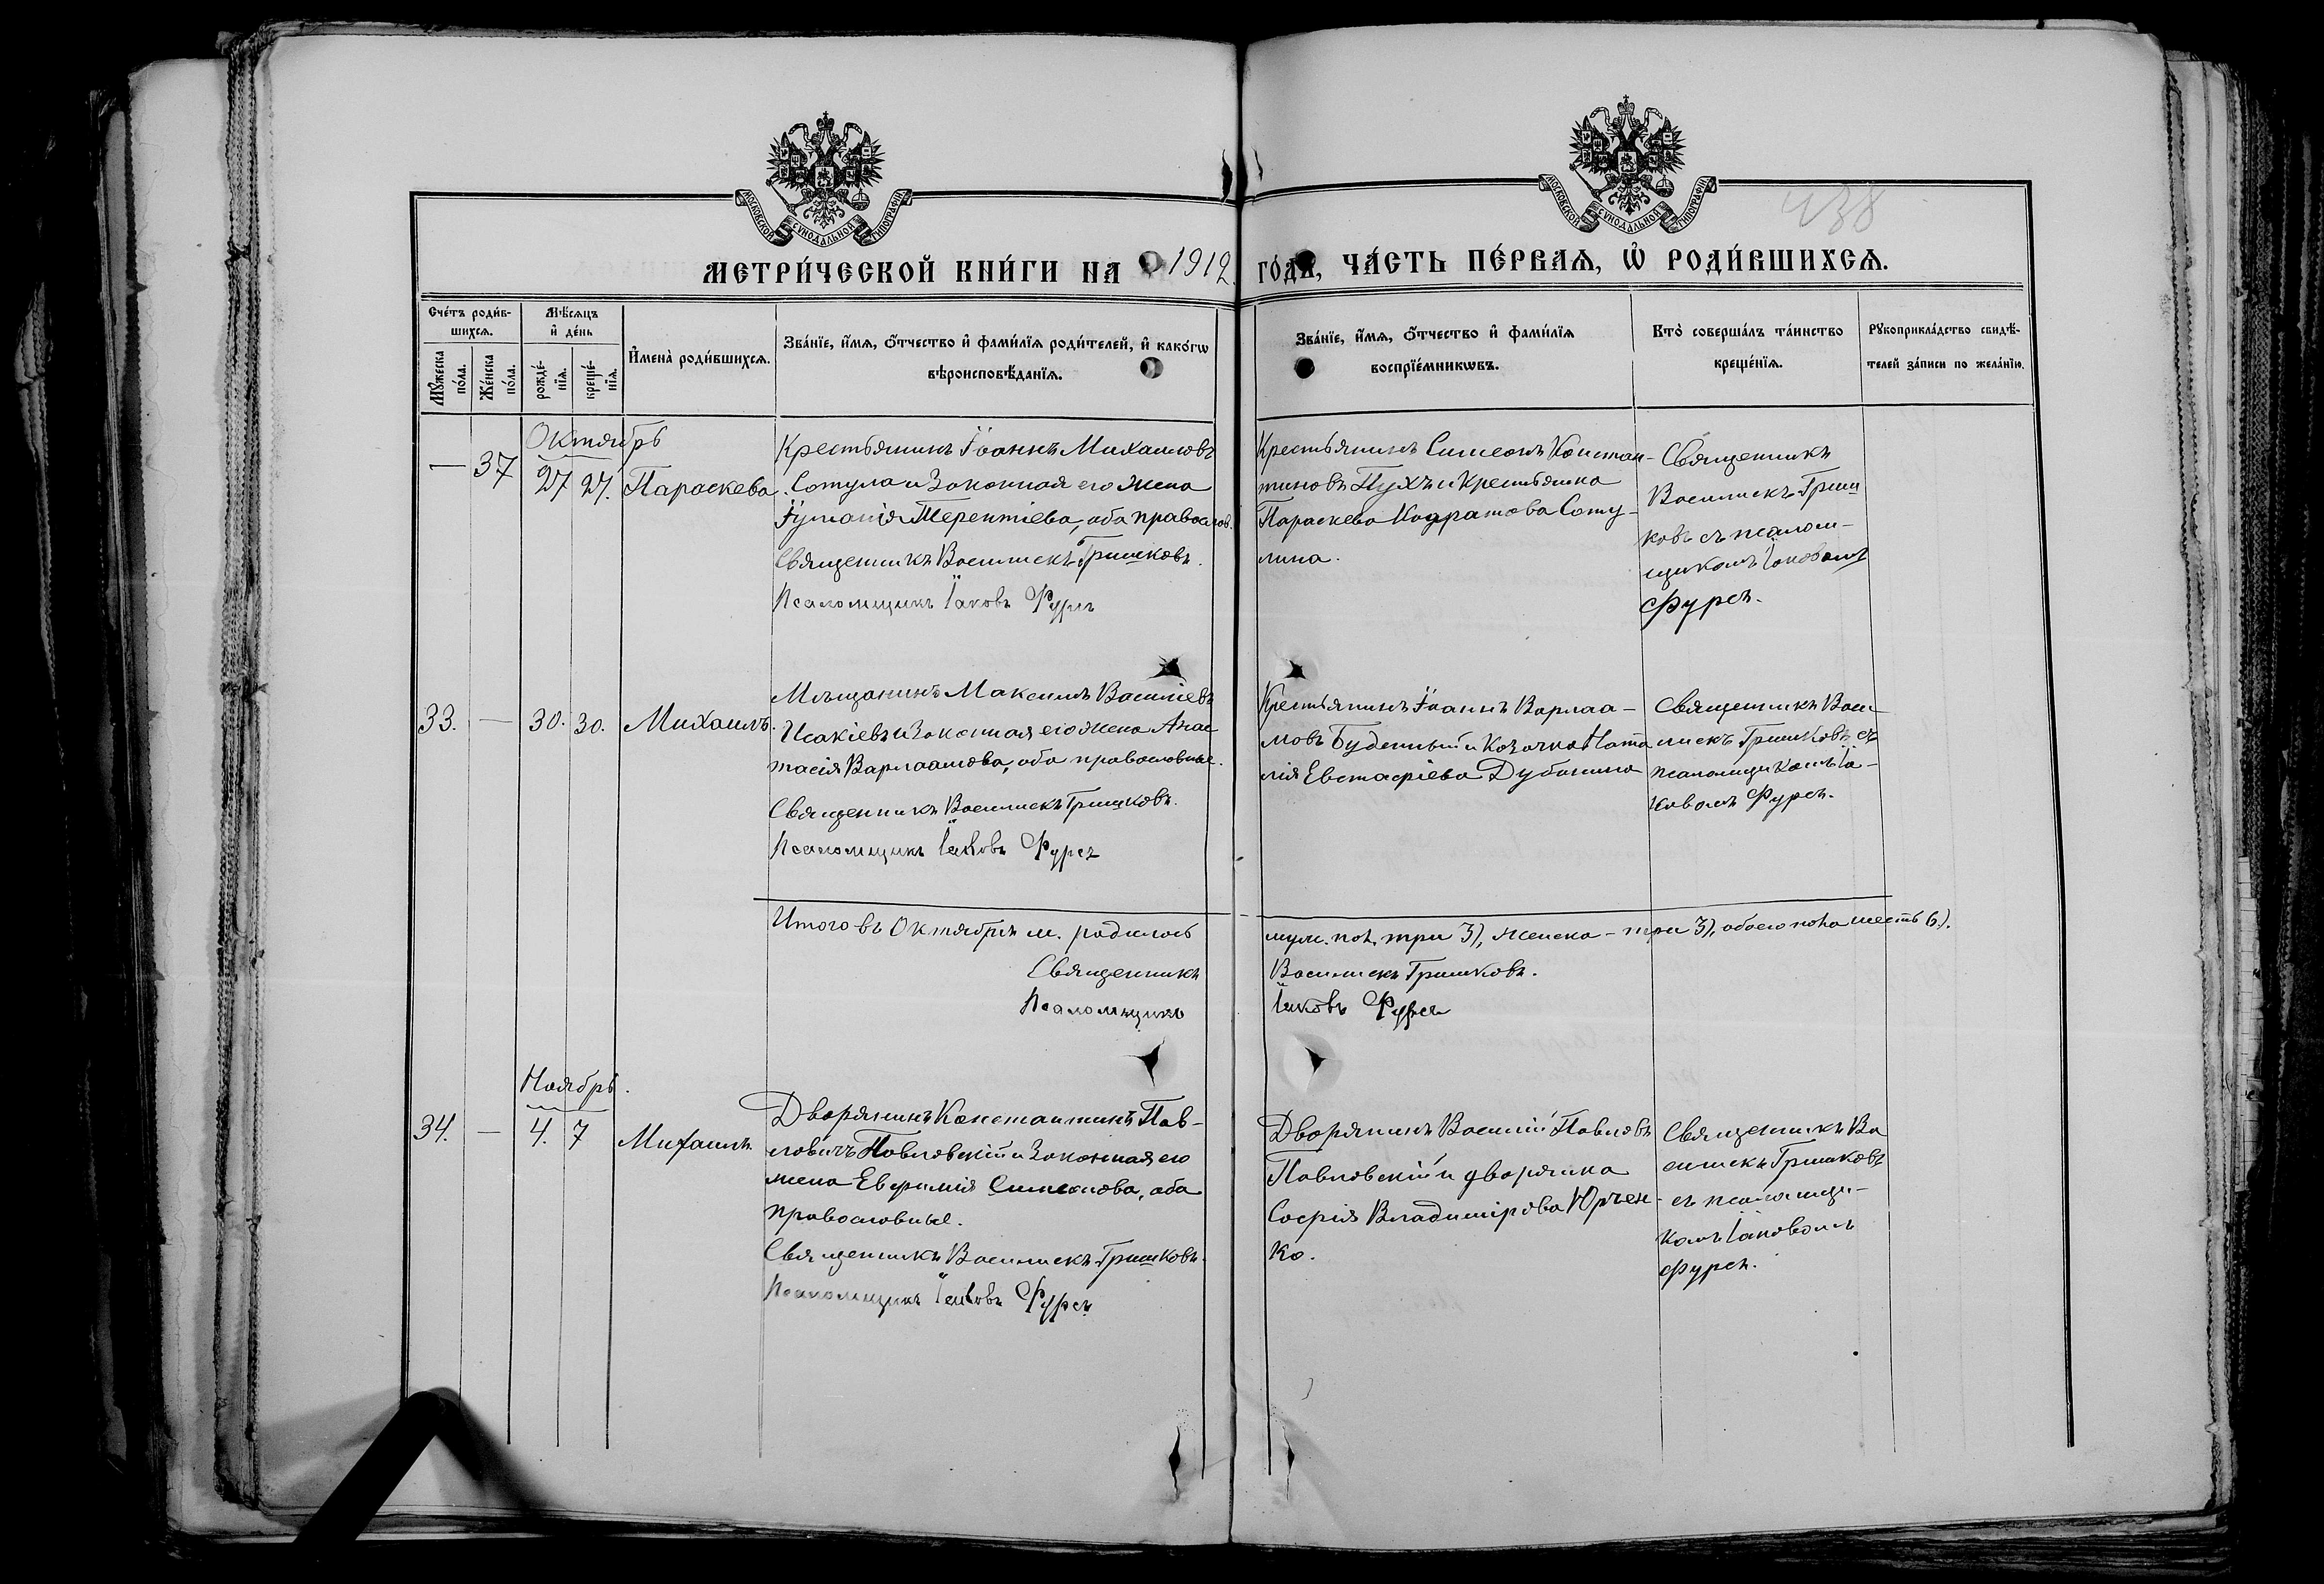 МОСКОВСКОЙ СѴНОДАЛЬНОЙ ТИПОГРАФІИ
МОСКОВСКОЙ СѴНОДАЛЬНОЙ ТИПОГРАФІИ
438
МЕТРИ́ЧЕСКОЙ КНИ́ГИ НА 1912 ГО́ДЪ, ЧА́СТЬ ПЕ́РВАѦ, Ѡ҆ РОДИ́ВШИХСѦ.
Сче́тъ роди́в-
шихсѧ.
Мꙋ́жеска
по́ла.
Же́нска
по́ла.
Мѣ́сѧцъ
и҆ де́нь
рожде́-
нїѧ.
креще́-
нїѧ.
И҆мена̀ роди́вшихсѧ.
Зва́нїе, и҆́мѧ, ѻ҆́тчество и҆ фами́лїѧ роди́телей, и҆ како́гѡ
вѣроисповѣ́данїѧ.
Зва́нїе, и҆́мѧ, ѻ҆́тчество и҆ фами́лїѧ
воспрїе́мникѡвъ.
Кто̀ соверша́лъ та́инство
креще́нїѧ.
Рꙋкоприкла́дство свидѣ́-
телей за́писи по жела́нїю.
Октябрь
— 37 27 27. Параскева.
Крестьянинъ Іоаннъ Михаиловъ
Сотула и законная его жена
Іуліанія Терентіева, оба правосло.
Священникъ Василискъ Гришковъ.
Псаломщикъ Іаковъ Фурсъ
Крестьянинъ Симеонъ Констан-
тиновъ Пухъ и крестьянка
Параскева Кодратова Соту-
лина.
Священникъ
Василискъ Гриш
ковъ съ псалом-
щикомъ Іаковомъ
Фурсъ.
33. — 30. 30. Михаилъ.
Мѣщанинъ Максимъ Василіевъ
Исакіевъ и законная его жена Анас
тасія Варлаамова, оба православные.
Священникъ Василискъ Гришковъ.
Псаломщикъ Іаковъ Фурсъ
Крестьянинъ Іоаннъ Варлаа-
мовъ Буденный и козачка Ната
лія Евстафіева Дубинина
Священникъ Васи-
лискъ Гришковъ съ
псаломщикомъ Іа-
ковомъ Фурсъ.
Итого въ Октябрѣ м. родилось
муж. пол. три 3), женска - три 3), обоего пола шесть 6).
Священникъ
Василискъ Гришковъ.
Псаломщикъ
Іаковъ Фурсъ
Ноябрь.
34. — 4. 7 Михаилъ.
Дворянинъ Константинъ Пав-
ловичъ Павловскій и законная его
жена Евфимія Симеонова, оба
православные.
Священникъ Василискъ Гришковъ.
Псаломщикъ Іаковъ Фурсъ
Дворянинъ Василій Павловъ
Павловскій и дворянка
Софія Владимірова Юрчен-
ко.
Священникъ Ва
силискъ Гришковъ
съ псаломщи-
комъ Іаковомъ
Фурсъ.